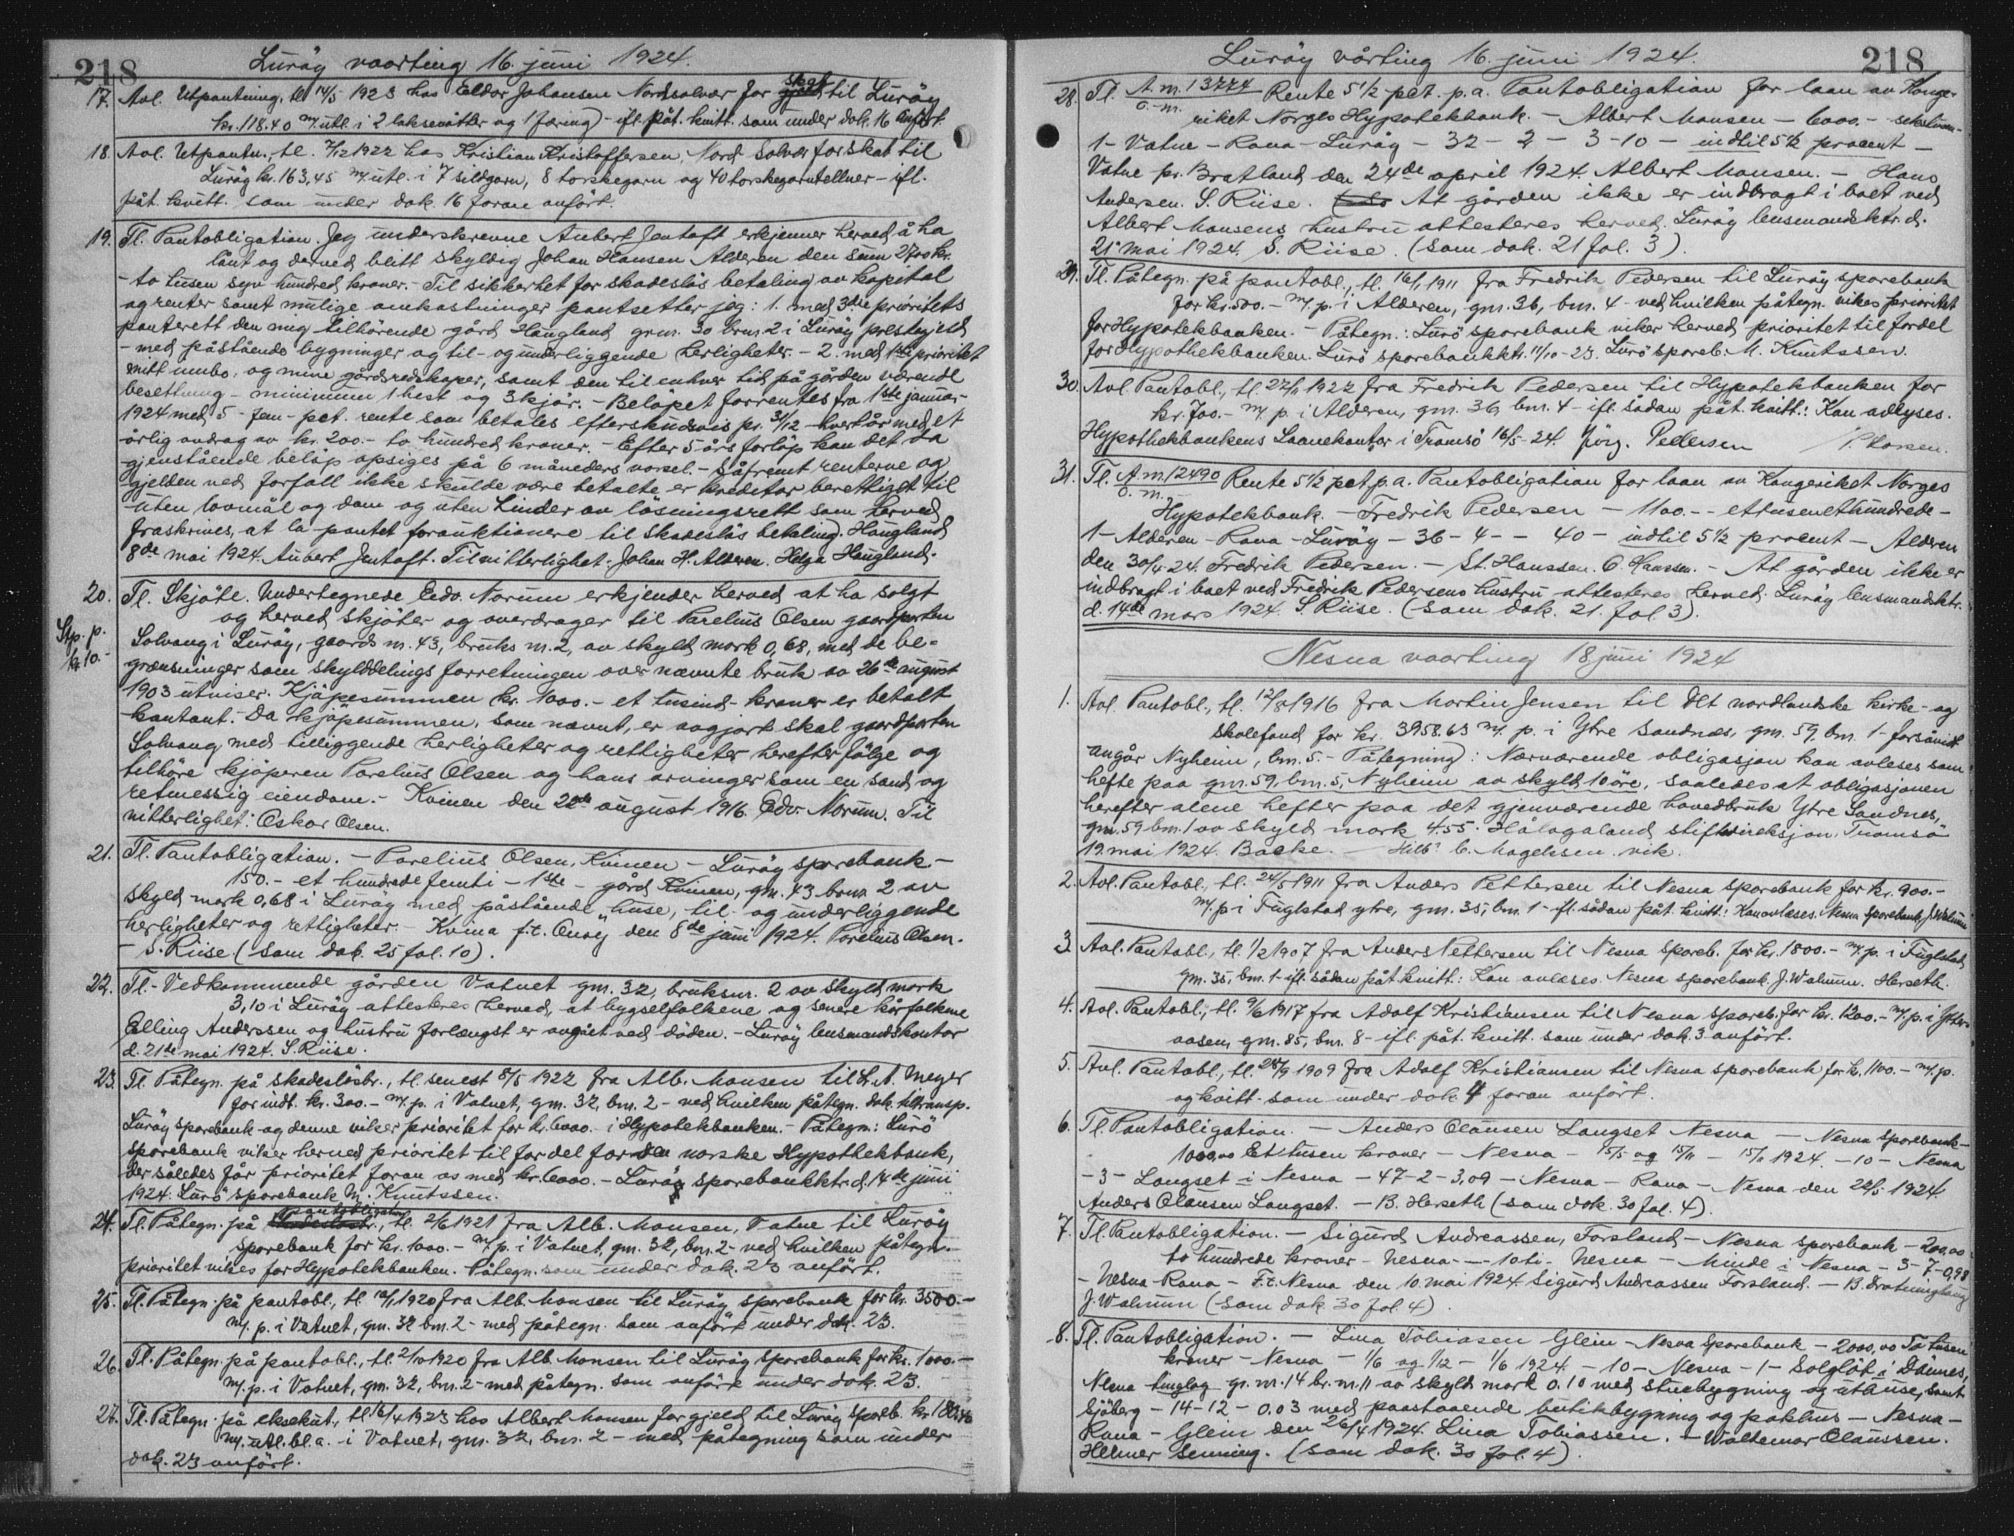 218
Lurøy vaarting 16. juni 1924.
17. Avl. Utpantning, tl. 14/5 1923 hos Eldor Johansen Nordsolvær for skat til Lurøy
kr. 118.40 m/ utl. i 2 laksenøtter og 1 færing) - ifl. påt. kvitt. som under dok. 16 anført.
18. Avl. Utpantn., tl. 7/12 1922 hos Kristian Kristoffersen, Nord Solvær for skat til
Lurøy kr. 163,45 m/ utl. i 7 sildgarn, 8 torskegarn og 40 torskegarntellner - ifl.
påt. kvitt. som under dok. 16 foran anført.
19. Tl. Pantobligation. Jeg underskrevne Aubert Jentoft erkjenner herved å ha
lånt og derved blitt skyldig Johan Hansen Alderen den sum 2700 kr.
- to tusen syv hundred kroner. - Til sikkerhet for skadesløs betaling av kapital
og renter samt mulige omkostninger pantsetter jeg: 1. med 3dje prioritets
panterett den meg tilhørende gård Haugland grnr. 30 brnr. 2 i Lurøy prestegjeld
- med påstående bygninger og til- og underliggende herligheter. - 2. med 1ste prioritet
mitt innbo, og mine gårdsredskaper, samt den til enhver tid på gården værende
besettning - minimum 1 hest og 3 kjør. - Beløpet forrentes fra 1ste januar
1924 med 5 - fem - pct. rente som betales efterskudsvis pr. 31/12 hvert år med et
årlig avdrag av kr. 200.- to hundred kroner. - Efter 5 års forløp kan det da
gjenstående beløp opsiges på 6 måneders varsel. - Såfremt renterne og
gjelden ved forfall ikke skulde være betalte er kreditor berettiget til
- uten lovmål og dom og uten hinder av løsningsrett som herved
fraskrives, at la pantet forauktionere til skadesløs betaling. Haugland
8de mai 1924. Aubert Jentoft. Til vitterlighet: Johan H. Alderen. Helga Haugland.
20. Tl. Skjøte. Undertegnede Edv. Norum erkjender herved at ha solgt
Stp. p.
kr 10.-
og herved skjøter og overdrager til Parelius Olsen gaardparten
Solvang i Lurøy, gaards nr. 43, bruks nr. 2, av skyld mark 0,68, med de be-
grænsninger som skylddelings forretningen over nævnte bruk av 26de august
1903 utviser. Kjøpesummen kr. 1000.- et tusind - kroner er betalt
kontant. - Da kjøpesummen, som nævnt, er avgjort skal gaardparten
Solvang med tilliggende herligheter og rettigheter herefter følge og
tilhøre kjøperen Parelius Olsen og hans arvinger som en sand og
retmessig eiendom. - Kvinen den 22de august 1916. Edv. Norum. Til
vitterlighet: Oskar Olsen.
21. Tl. Pantobligation. - Parelius Olsen, Kvinen - Lurøy sparebank. -
150.- et hundrede femti - 1ste - gård Kvinen, gnr. 43 brnr 2 av
skyld mark 0,68 i Lurøy med påstående huse, til- og underliggende
herligheter og rettigheter. - Kvina f.t. Onøy den 8de juni 1924. Parelius Olsen.
- S. Riise (som dok. 25 fol. 10).
22. Tl. - Vedkommende gården Vatnet gnr. 32, bruksnr. 2 av skyld mark
3,10 i Lurøy attesteres herved, at bygselfolkene og senere kårfolkene
Elling Anderssen og hustru forlængst er avgåt ved døden. - Lurøy lensmandskontor
d. 21de mai 1924. S. Riise.
23. Tl Påtegn. på skadesløsbr., tl. senest 8/5 1922 fra Alb. Monsen til L. A. Meyer
for indt. kr. 300.- m/ p. i Vatnet, gnr. 32, bnr. 2 - ved hvilken påtegn. dok. tiltransp.
Lurøy sparebank og denne viker prioritet for kr. 6000.- i Hypotekbanken. - Påtegn: Lurø
sparebank viker herved prioritet til fordel for den norske Hypothekbank,
der således får prioritet foran os med kr. 6000.- Lurøy sparebankktr. d. 14de juni
1924. Lurø sparebank M. Knutssen.
24. Tl. Påtegn. på pantobligation, tl. 2/6 1921 fra Alb. Monsen, Vatne til Lurøy
sparebank for kr. 1000.- m/ p. i Vatnet, gnr. 32, bnr. 2 - ved hvilken påtegn.
prioritet vikes for Hypotekbanken. Påtegn. som under dok. 23 anført.
25. Tl. Påtegn. på pantobl., tl. 1920 fra Alb. Monsen til Lurøy sparebank for kr. 3500.-
m/. p. i Vatnet, gnr. 32 bnr. 2 - med påtegn. som anført under dok. 23.
26. Tl. Påtegn. på pantobl., tl. 2/10 1920 fra Alb. Monsen til Lurøy sparebank for kr. 1000.-
m/. p. i Vatnet, gnr. 32, bnr. 2 - med påtegn. som anført under dok. 23.
27. Tl. Påtegn. på eksekut., tl. 16/4 1923 hos Albert Monsen for gjeld til Lurøy spareb. kr.
m/. utl. bl. a. i Vatnet, gnr. 32, bnr. 2 - med påtegning som under
dok. 23 anført.
218
Lurøy vårting 16. juni 1924.
28. Tl. A. nr. 13774 Rente 5 1/2 pct. p. a. Pantobligation for laan av Konge-
riket Norges Hypotekbank. - Albert Monsen - 6000.-
1 - Vatne - Rana - Lurøy - 32 - 2 - 3-10 - indtil 5 1/2 procent -
Vatne pr. Bratland den 24de april 1924. Albert Monsen. - Hans
Andersen. S. Riise. At gården ikke er indbragt i boet ved
Albert Monsens hustru attesteres herved. Lurøy lensmandsktr. d.
21. mai 1924. S. Riise. (som dok. 21 fol. 3).
29. Tl. Påtegn. på pantobl., tl. 16/1 1911 fra Fredrik Pedersen til Lurøy sparebank
for kr. 500.- m/. p. i Alderen, gnr. 36, bnr. 4 - ved hvilken påtegn. vikes prioritet
for Hypotekbanken. - Påtegn.: Lurø sparebank viker herved prioritet til fordel
for Hypothekbanken. Lurø sparebankktr. 11/10 - 23. Lurø spareb. M. Knutssen.
30. Avl. Pantobl., tl. 1922 fra Fredrik Pedersen til Hypotekbanken for
kr. 700.- m/ p. i Alderen, gnr. 36, bnr. 4 - ifl. sådan påt. kvitt.: Kan avlyses.
Hypothekbankens Laanekontor i Tromsø 16/5 - 24. Jörg. Pedersen / P Larsen.
31. Tl. A. nr. 12490 Rente 5 1/2 pct. p. a. Pantobligation for laan av Kongeriket Norges
Hypotekbank. - Fredrik Pedersen - 1100.- - ettusenethundrede -
1 - Alderen - Rana - Lurøy - 36 - 4 - - 40 - indtil 5 1/2 procent - Alderen
den 30/4 24. Fredrik Pedersen. - St. Hanssen. O. Hanssen. - At gården ikke er
indbragt i boet ved Fredrik Pedersens hustru attesteres herved. Lurøy lensmandsktr.
d. 14de mars 1924. S. Riise. (som dok. 21. fol 3).
Nesna vaarting 18 juni 1924
1. Avl. Pantobl., tl. 12/8 1916 fra Martin Jensen til Det nordlandske kirke- og
skolefond for kr. 3958.63 m/. p. i Ytre Sandnes, gnr. 59, bnr. 1 - forsåvidt
angår Nyheim, bnr. 5. - Påtegning): Nærværende obligasjon kan avleses som
hefte paa gnr. 59, bnr. 5, Nyheim av skyld 10 øre, saaledes at obligasjonen
herefter alene hefter paa det gjenværende hovedbruk Ytre Sandnes,
gnr. 59 bnr. 1 av skyld mark 4.55. Hålogaland stiftsdireksjon, Tromsø
19. mai 1924. Backe. - Hilb. C. Magelssen. vik.
2. Avl. Pantobl., tl. 24/5 1911 fra Anders Pettersen til Nesna sparebank for kr. 900.-
m/. p i Fuglstad ytre, gnr. 35, bnr. 1 - ifl. sådan påt. kvitt.: Kan avlæses. Nesna Sparebank, J. Walnum
3. Avl. Pantobl., tl. 1/2 1907 fra Anders Pettersen til Nesna spareb. for kr. 1800.- m/. p. i Fuglstad,
gnr. 35, bnr. 1 - ifl. sådan påt. kvitt.: Kan avlæses Nesna sparebank. J. Walnum. Herseth.
4. Avl. Pantobl., tl. 9/6 1917 fra Adolf Kristiansen til Nesna spareb. for kr. 1200.- m/. p. i Ytter-
aasen, gnr. 85, bnr. 8 - ifl. påt. kvitt. som under dok. 3 anført.
5. Avl. Pantobl., tl. 28/9 1909 fra Adolf Kristiansen til Nesna sparebank for kr. 1100.- m/. p.
og kvitt. som under dok. 4 foran anført.
6. Tl. Pantobligation. - Anders Olausen Langset Nesna - Nesna sparebank -
1000,00 Et tusen kroner - Nesna - 15/5 og 15/11 - 15/11 1924. - 10 - Nesna
- 3 - Langset i Nesna - 47 - 2 - 3,09 - Nesna - Rana - Nesna den 22/5 1924.
Anders Olausen Langset. - B. Herseth (som dok. 30 fol. 4).
7. Tl. Pantobligation. - Sigurd Andreassen, Forsland - Nesna sparebank - 200,00
to hundrede kroner - Nesna - - 10 ti - Nesna - Minde i Nesna - 3 - 7 - 0,98
- Nesna - Rana - F.t. Nesna den 10 mai 1924 Sigurd Andreassen Forsland. - B. Dronninghaug
J. Walnum (som dok. 30 fol. 4).
8. Tl. Pantobligation. - Lina Tobiasen Glein - Nesna sparebank - 2000,00 To tusen
kroner - Nesna - 1/6 og 1/12 - 1/6 1924. - 10 - Nesna - 1 - Solgløt i Dønnes,
Nesna tinglag gr. nr. 14 br. nr. 11 av skyld mark 0.10 med stuebygning og uthuse, samt
Sjøberg - 14 - 12 - 0.03 med paastaaende butikbygning og pakhus - Nesna -
Rana - Glein den 26/4 1924. Lina Tobiassen. - Waldemar Olaussen.
Helmer Senning. (som dok. 30 fol. 4).